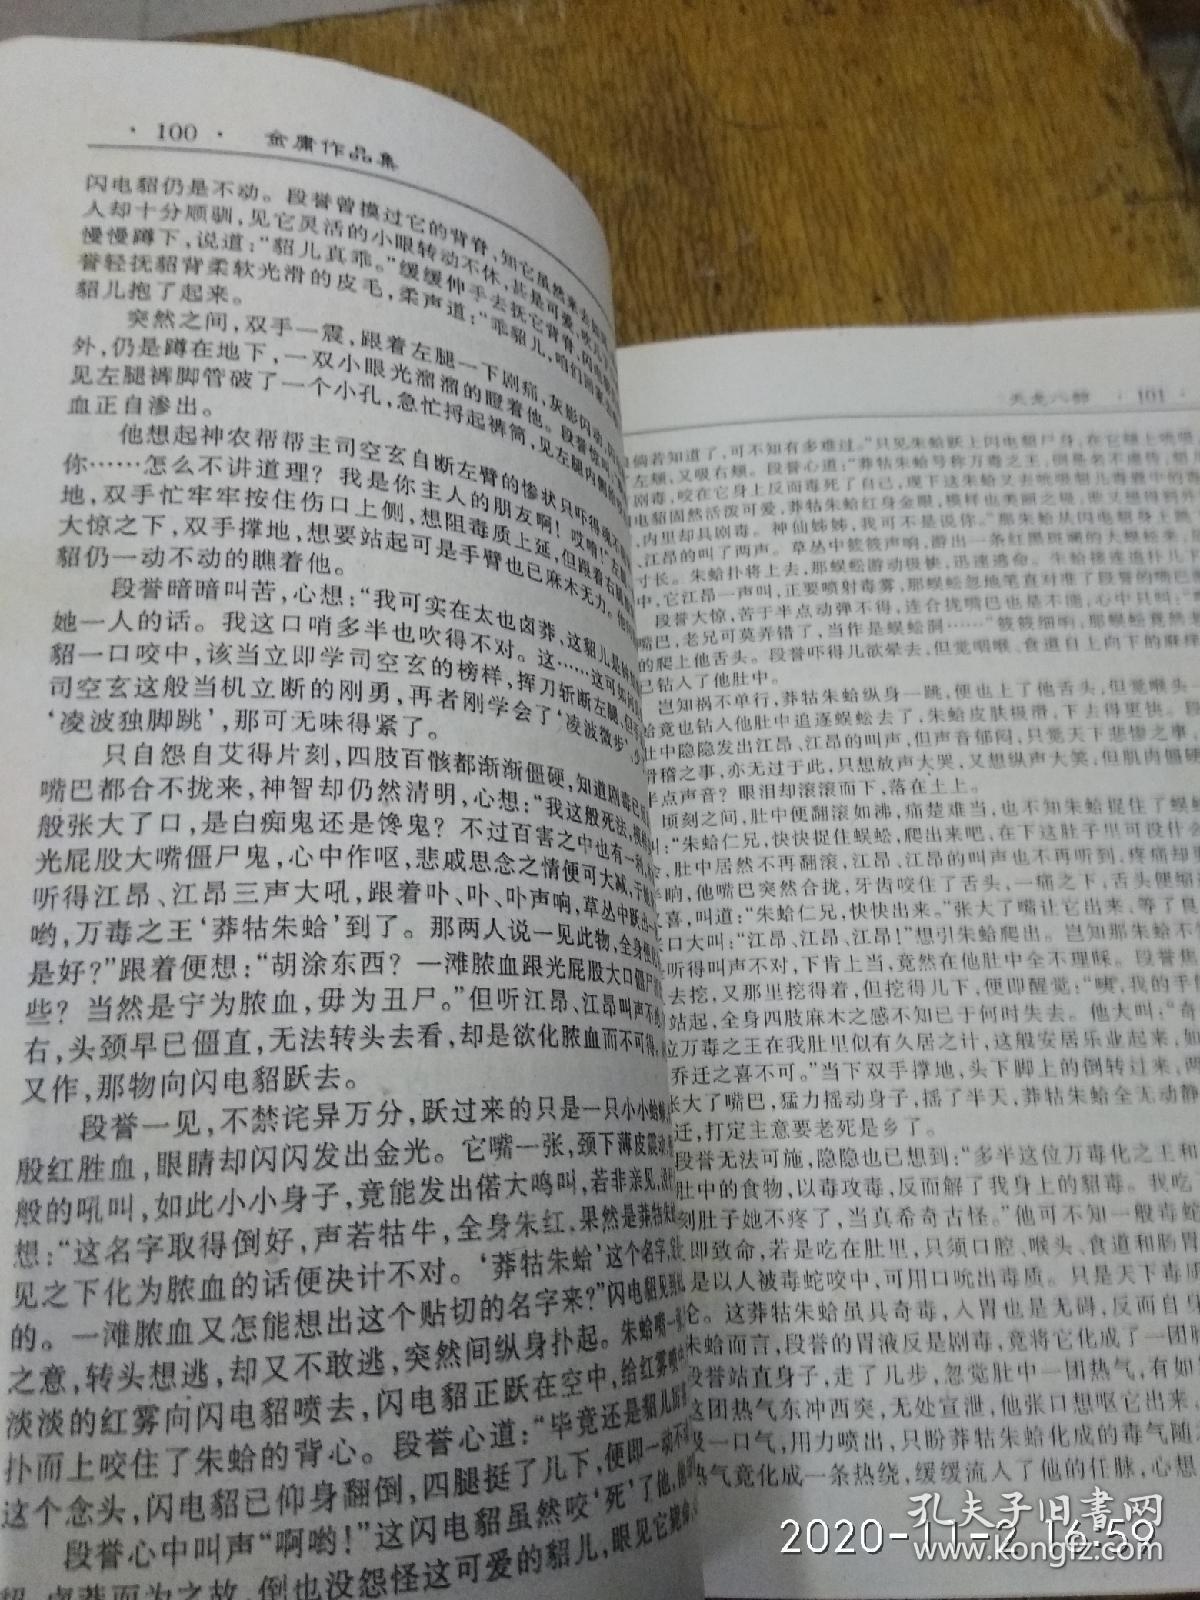 · 100 · 金庸作品集
闪电貂仍是不动。段誉曾摸过它的背脊、知它虽然来去如
人却十分顺驯,见它灵活的小眼转动不休,甚是可爱,
慢慢蹲下,说道:“貂儿真乖。”缓缓伸手去抚它背脊,闪电
誉轻抚貂背柔软光滑的皮毛,柔声道:“乖貂儿,咱们回家
貂儿抱了起来。
突然之间,双手一震,跟着左腿一下剧痛,灰影闪动,
外,仍是蹲在地下,一双小眼光溜溜的瞪着他。段誉
见左腿裤脚管破了一个小孔,急忙捋起裤筒,见左腿内侧
血正自渗出。
他想起神农帮帮主司空玄自断左臂的惨状只吓得魂不
你……怎么不讲道理?我是你主人的朋友啊!哎唷!”左腿
地,双手忙牢牢按住伤口上侧,想阻毒质上延,但跟着右腿
大惊之下,双手撑地,想要站起可是手臂也已麻木无力。
貂仍一动不动的瞧着他。
段誉暗暗叫苦,心想:“我可实在太也卤莽,这貂儿是钟
她一人的话。我这口哨多半也吹得不对。这……这可如何
貂一口咬中,该当立即学司空玄的榜样,挥刀斩断左腿,但
司空玄这般当机立断的刚勇,再者刚学会了‘凌波微步’
‘凌波独脚跳’,那可无味得紧了。
只自怨自艾得片刻,四肢百骸都渐渐僵硬,知道剧毒已
嘴巴都合不拢来,神智却仍然清明,心想:“我这般死法,
般张大了口,是白痴鬼还是馋鬼?不过百害之中也有一利,
光屁股大嘴僵尸鬼,心中作呕,悲戚思念之情便可大减,于
听得江昂、江昂三声大吼,跟着卟、卟、卟声响,草丛中跃出一
哟,万毒之王‘莽牯朱蛤’到了。那两人说一见此物,全身
是好?”跟着便想:“胡涂东西?一滩脓血跟光屁股大口僵尸
些?当然是宁为脓血,毋为丑尸。”但听江昂、江昂叫声不
右,头颈早已僵直,无法转头去看,却是欲化脓血而不可得。
又作,那物向闪电貂跃去。
段誉一见,不禁诧异万分,跃过来的只是一只小小蛤
殷红胜血,眼睛却闪闪发出金光。它嘴一张,颈下薄皮震动
般的吼叫,如此小小身子,竟能发出偌大鸣叫,若非亲见,
想:“这名字取得倒好,声若牯牛,全身朱红,果然是莽牯朱
见之下化为脓血的话便决计不对。‘莽牯朱蛤’这个名字,
的。一滩脓血又怎能想出这个贴切的名字来?”闪电貂见
之意,转头想逃,却又不敢逃,突然间纵身扑起。朱蛤嘴一
淡淡的红雾向闪电貂喷去,闪电貂正跃在空中,给红雾喷
扑而上咬住了朱蛤的背心。段誉心道:“毕竟还是貂儿
这个念头,闪电貂已仰身翻倒,四腿挺了几下,便即一动不
段誉心中叫声“啊哟!”这闪电貂虽然咬‘死’了他,
卤莽而为之故,倒也没怨怪这可爱的貂儿,眼见它
天龙八部 · 101 ·
倘若知道了,可不知有多难过。”只见朱蛤跃上闪电貂尸身,在它颊上吮吸
左颊,又吸右颊。段誉心道:“莽牯朱蛤号称万毒之王,倒是名不虚传,
剧毒,咬在它身上反而毒死了自己,现下这朱蛤又去吮吸貂儿毒囊中的毒
电貂固然活泼可爱,莽牯朱蛤红身金眼,模样也美丽之极,谁又想得到
,内里却具剧毒。神仙姊姊,我可不是说你。”那朱蛤从闪电貂身上跳
、江昂的叫了两声。草丛中簌簌声响,游出一条红黑斑斓的大蜈蚣来,
寸长。朱蛤扑将上去,那蜈蚣游动极快,迅速逃命。朱蛤接连追扑几下
中,它江昂一声叫,正要喷射毒雾,那蜈蚣忽地笔直对准了段誉的嘴巴
段誉大惊,苦于半点动弹不得,连合拢嘴巴也是不能,心中只叫:
嘴巴,老兄可莫弄错了,当作是蜈蚣洞……”簌簌细响,那蜈蚣竟然
的爬上他舌头。段誉吓得几欲晕去,但觉咽喉、食道自上向下的麻痒
已钻入了他肚中。
岂知祸不单行,莽牯朱蛤纵身一跳,便也上了他舌头,但觉喉头一
蛤竟也钻入他肚中追逐蜈蚣去了,朱蛤皮肤极滑,下去得更快。段
肚中隐隐发出江昂、江昂的叫声,但声音郁闷,只觉天下悲惨之事,
滑稽之事,亦无过于此,只想放声大哭,又想纵声大笑,但肌肉僵硬
半点声音?眼泪却滚滚而下,落在土上。
顷刻之间,肚中便翻滚如沸,痛楚难当,也不知朱蛤捉住了蜈
叫:“朱蛤仁兄,快快捉住蜈蚣,爬出来吧,在下这肚子里可没什么
,肚中居然不再翻滚,江昂、江昂的叫声也不再听到,疼痛却
半晌,他嘴巴突然合拢,牙齿咬住了舌头,一痛之下,舌头便缩
喜,叫道:“朱蛤仁兄,快快出来。”张大了嘴让它出来,等了良
口大叫:“江昂、江昂、江昂!”想引朱蛤爬出。岂知那朱蛤不
听得叫声不对,下肯上当,竟然在他肚中全不理睬。段誉焦
去挖,又那里挖得着,但挖得几下,便即醒觉:“咦,我的手
站起,全身四肢麻木之感不知已于何时失去。他大叫:“奇
位万毒之王在我肚里似有久居之计,这般安居乐业起来,如
乔迁之喜不可。”当下双手撑地,头下脚上的倒转过来,两
张大了嘴巴,猛力摇动身子,摇了半天,莽牯朱蛤全无动静
迁,打定主意要老死是乡了。
段誉无法可施,隐隐也已想到:“多半这位万毒化之王和
肚中的食物,以毒攻毒,反而解了我身上的貂毒。我吃
刻肚子她不疼了,当真希奇古怪。”他可不知一般毒蛇
即致命,若是吃在肚里,只须口腔、喉头、食道和肠胃
是以人被毒蛇咬中,可用口吮出毒质。只是天下毒质
论。这莽牯朱蛤虽具奇毒,入胃也是无碍,反而自身
朱蛤而言,段誉的胃液反是剧毒,竟将它化成了一团脓
段誉站直身子,走了几步,忽觉肚中一团热气,有如
这团热气东冲西突,无处宣泄,他张口想呕它出来,
及一口气,用力喷出,只盼莽牯朱蛤化成的毒气随
热气竟化成一条热绕,缓缓流入了他的任脉,心想
孔夫子旧書网
www.kongfz.com
2020-11-2 16:59